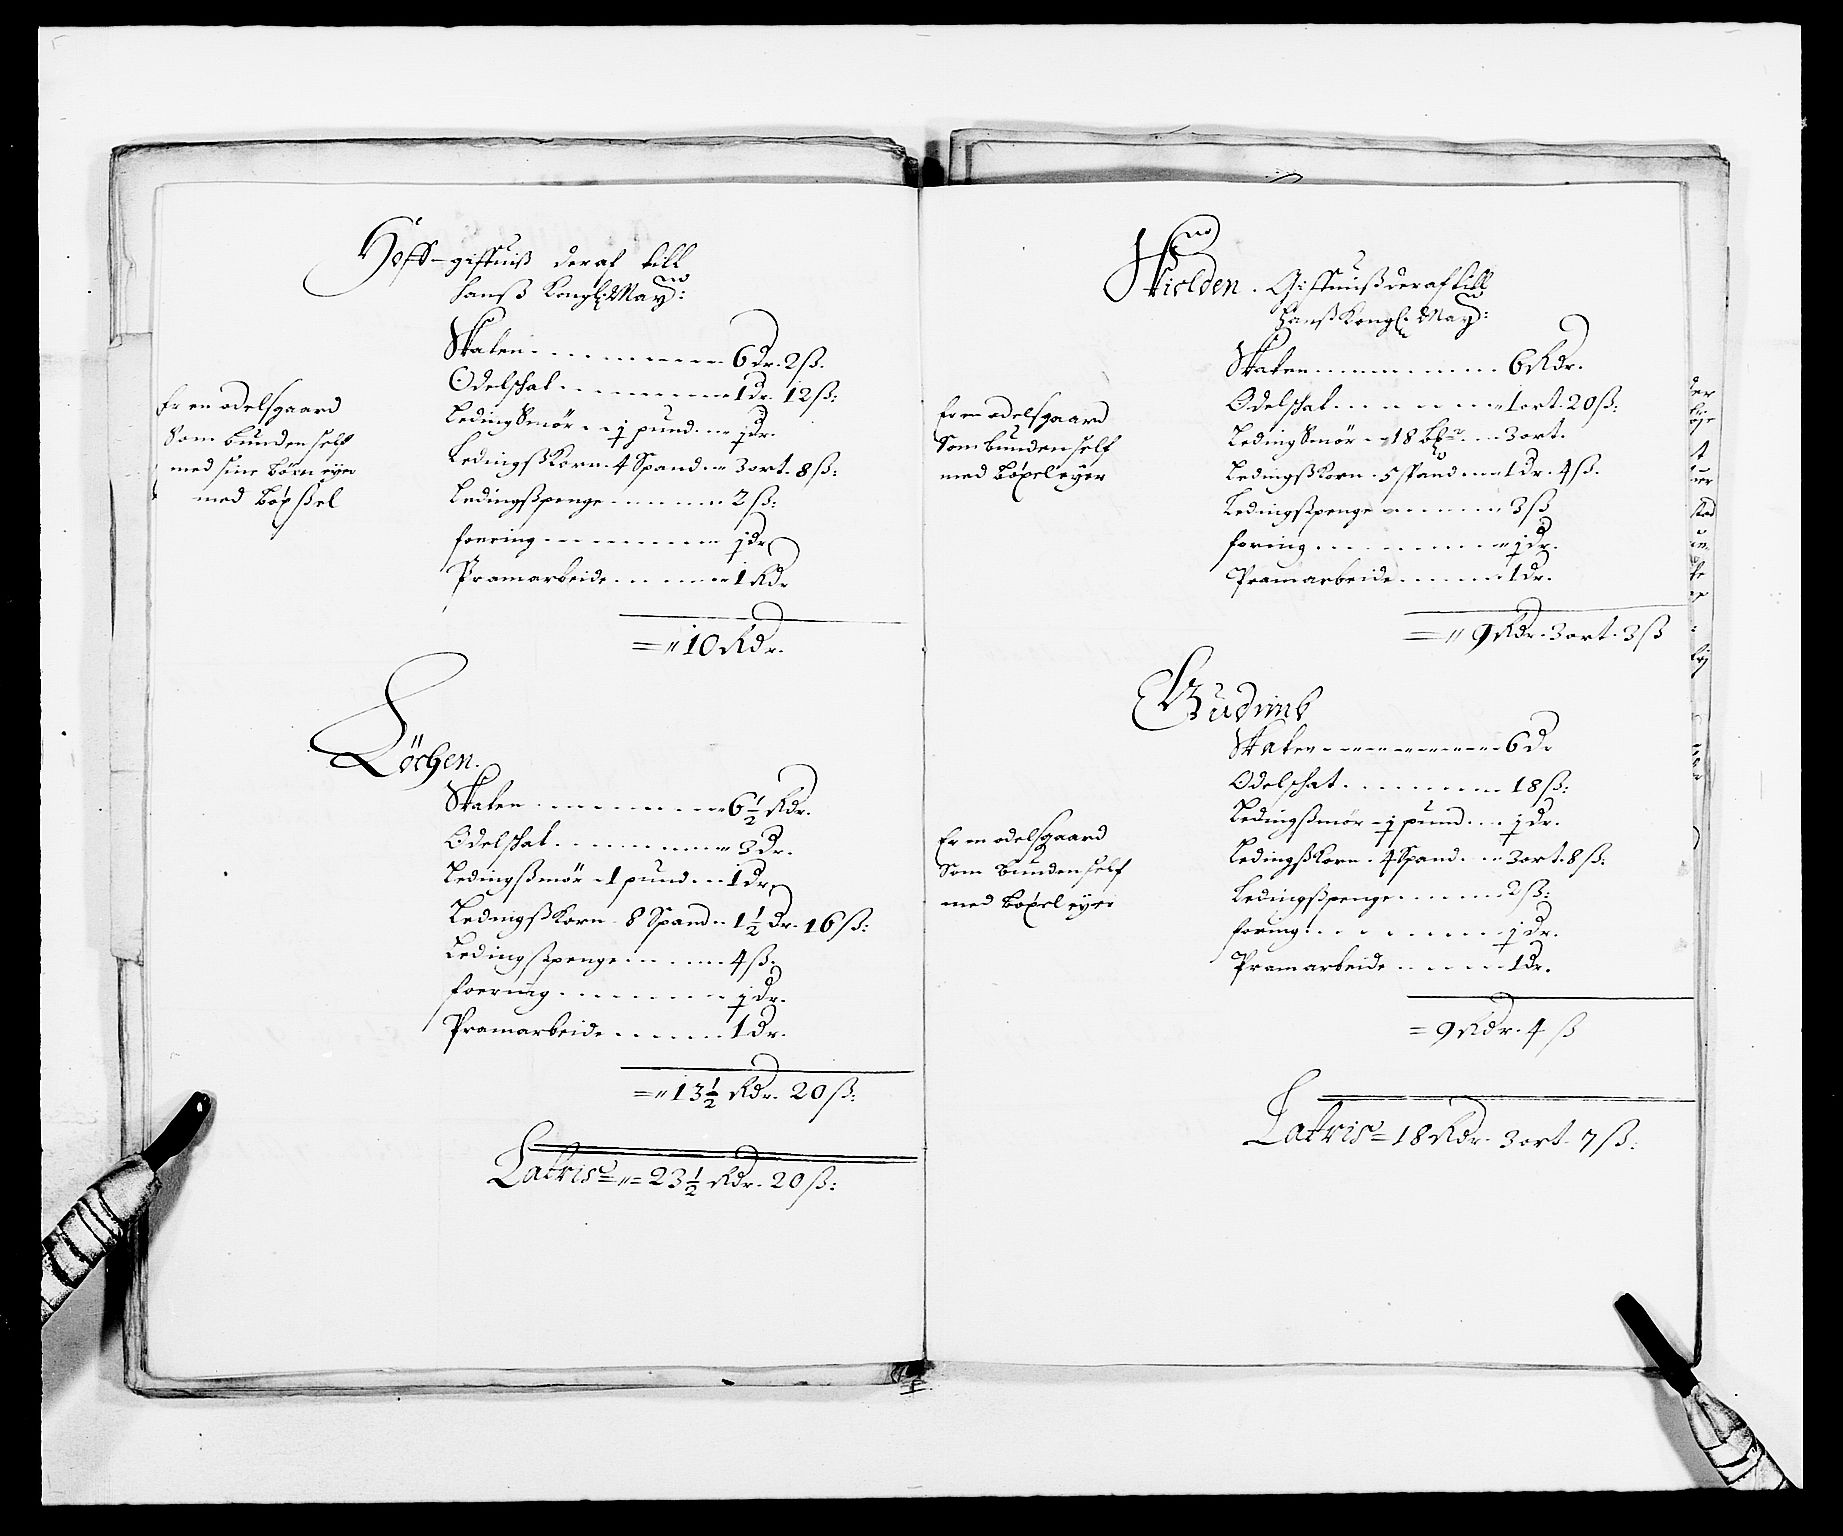 Hoff - giffuiß deraf till
hanß Kongl: May:
Skaten 6 dr. 2 ß.
Odelschat 1 dr. 12 ß:
LedingSmör - j pund j dr.
LedingßKorn 4 Spand 3 ort. 8 ß:
Ledingßpenge 2 ß:
foering j dr
Pramarbeide 1 Rdr
= 10 Rdr.
Er en odelsgaard
Som bunden self
med sine börn eyer
med böxsel
Löchen.
Skaten 6 ½ Rdr.
Odelschat 3 dr.
Ledingßmör 1 pund 1 dr
LedingßKorn 8 Spand 1 ½ dr. 16 ß:
Ledingßpenge 4 ß.
foering j dr.
Pramarbeide 1 dr.
= 13 ½ Rdr. 20 ß:
Latris = 23 ½ Rdr. 20 ß:
Kiolden. Giffuiß deraf till
Hanß Kongl: May:
Skaten 6 Rdr.
Odelschat 1 ort. 20 ß:
LedingSmör 18 3 ort.
LedingßKorn 5 spand 1 dr. 4 ß.
Ledingßpenge 3 ß
foring j dr.
Pramarbeide 1 dr.
= 9 Rdr. 3 ort. 3 ß
Er en odelsgaard
Som bunden self
med böxel eyer
Büdimb
Skaten 6 dr
Odelschat 18 ß:
Ledingßmör - j pund j dr.
LedingßKorn 4 Spand 3 ort. 8 ß:
Ledingßpenge 2 ß:
foring j dr.
Pramarbeide 1 dr.
= 9 Rdr. 4 ß
Er en odelsgaard
Som bunden self
med böxel eyer
Latris = 18 Rdr. 3 ort. 7 ß: